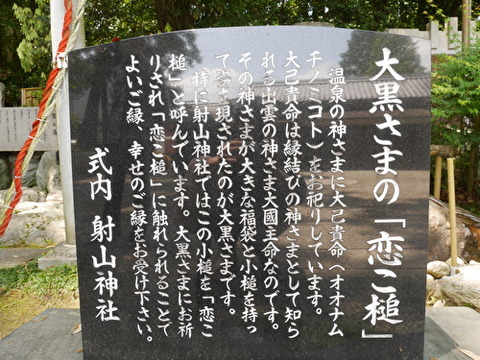 大黒さまの「恋こ槌」
温泉の神さまに大己貴命（オオナム
チノミコト）をお祀りしています。
大己貴命は縁結びの神さまとして知ら
れる出雲の神さま大國主命なのです。
その神さまが大きな福袋と小槌を持っ
て
現されたのが大黒さまです。
特に射山神社ではこの小槌を「恋こ
槌」と呼んでいます。大黒さまにお祈
りされ「恋こ槌」に触れられることで
よいご縁　幸せのご縁をお受け下さい。
式内　射山神社